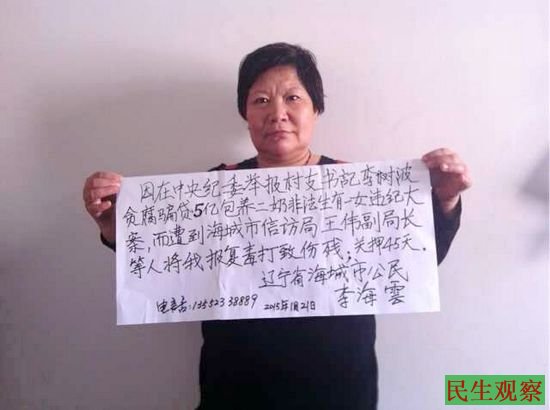 因在中央纪委举报村支书记李树波
贪腐骗贷5亿包养二奶非法生育一女违纪大
案,而遭到海城市信访局王伟副局长
等人将我报复毒打致伤残;关押45天.
辽宁省海城市公民
李海雲
电话:13332338889 2015年1月21日
民生观察